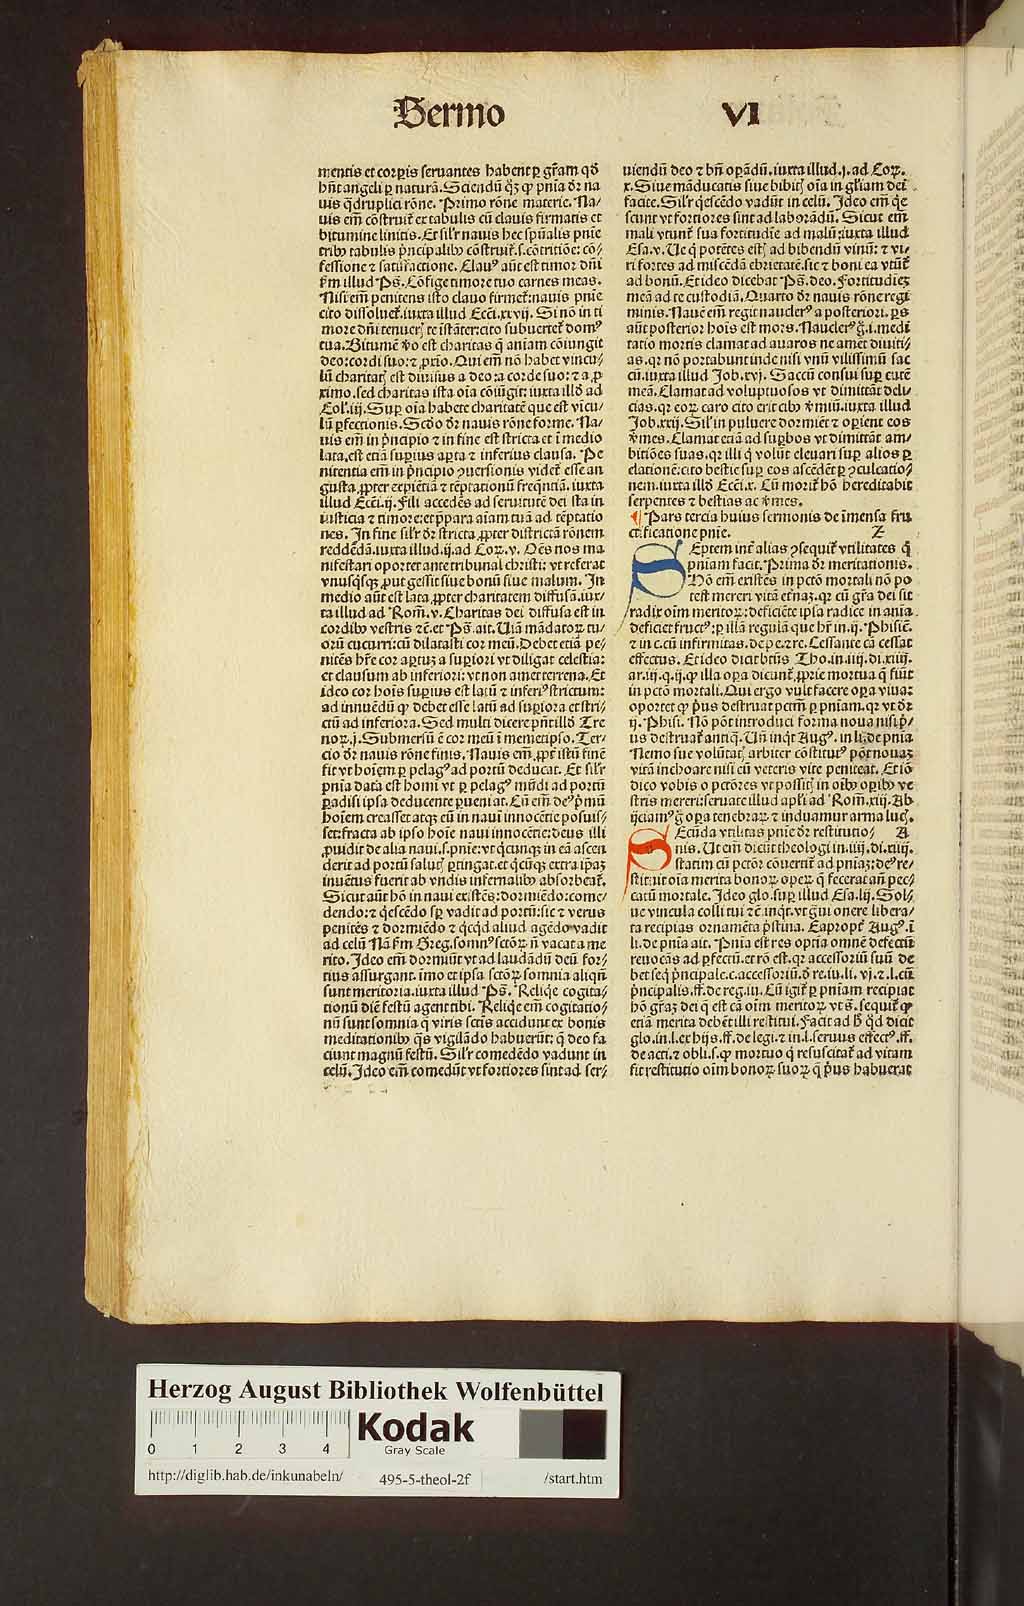 Sermo VI
mentis et corꝑis seruantes habent ꝑ gr̄am qđ
hn̄t angeli ꝑ naturā. Sciendū qʒ ꝙ pn̄ia dr̄ na
uis q̄druplici rōne. Primo rōne materie. Na⸗
uis em̄ cōstruit̄ ex tabulis cū clauis firmatis et
bitumine linitis. Et sil'r nauis hec spūalis pnīe
tribꝰ tabulis p̄ncipalibꝰ cōstruit̄.s.cōtritiōe: cō⸗
fessione ⁊ satisfactione. Clauꝰ aūt est timor dn̄i
fm̄ illud Ps̄. Cōfige timore tuo carnes meas.
Nisi em̄ penitens isto clauo firmet̄: nauis pnīe
cito dissoluet̄. iuxta illud Ecc̄i.xxvij. Si nō in ti
more dn̄i tenuerꝭ te īstāter: cito subuertet̄ domꝰ
tua. Bitumē ꝟo est charitas q̄ aniam cōiungit
deo: cordi suo: ⁊ ꝓxīo. Qui em̄ nō habet vincu⸗
lū charitatꝭ est diuisus a deo: a corde suo: ⁊ a ꝓ
ximo. sed charitas ista oīa cōiūgit: iuxta illđ ad
Col̄.iij. Suꝑ oīa habete charitatē que est vīcu⸗
lū ꝑfectionis. Scd̄o dr̄ nauis rōne forme. Na⸗
uis em̄ in p̄ncipio ⁊ in fine est stricta et ī medio
lata. est etiā suꝑius aꝑta ⁊ inferius clausa. Pe
nitentia em̄ in p̄ncipio ꝯuersionis videt̄ esse an
gusta ꝓpter exꝑiētiā ⁊ tēptationū freq̄ntiā. iuxta
illud Ecc̄i.ij. Fili accedēs ad seruitutē dei sta in
iusticia ⁊ timore: et p̄para aīam tuā ad tēptatio
nes. In fine sil'r dr̄ stricta ꝓpter districtā rōnem
reddēdā. iuxta illud .ij. ad Coꝝ.v. Oēs nos ma
nifestari oportet ante tribunal christi: vt referat
vnusq̄sqꝫ ꝓut gessit siue bonū siue malum. In
medio aūt est lata ꝓpter charitatem diffusā. iux⸗
ta illud ad Rom̄.v. Charitas dei diffusa est in
cordibꝰ vestris ⁊c̄. et Ps̄. ait. Uiā mādatoꝝ tu⸗
oꝝ cucurri: cū dilatasti cor meū. Debet etiā pe⸗
nitēs hr̄e cor aꝑtuꝫ a suꝑiori vt diligat celestia:
et clausum ab inferiori: vt non amet terrena. Et
ideo cor hoīs suꝑius est latū ⁊ inferiꝰ strictum:
ad innuēdū ꝙ debet esse latū ad suꝑiora et stri⸗
ctū ad inferiora. Sed multi dicere pn̄t illđ Tre
noꝝ.j. Submersū ē cor meū ī memetipso. Ter⸗
cio dr̄ nauis rōne finis. Nauis em̄ ꝓpt̄ istū finē
fit vt hoīem ꝑ pelagꝰ ad portū deducat. Et sil'r
pnīa data est homi vt ꝑ pelagꝰ mūdi ad portū
ꝑadisi ipsa deducente ꝑueniat. Cū em̄ deꝰ p̄mū
hoīem creasset atqꝫ eū in naui innocētie posuis⸗
set: fracta ab ipso hoīe naui innocētie: deus illi
ꝓuidit de alia naui.s.pnīe: vt q̄cunqꝫ in eā ascen
derit ad portū salutꝭ ꝑtingat. et q̄cūqꝫ extra ipaꝫ
inuētus fuerit ab vndis infernalibꝰ absorbeat̄.
Sicut aūt hō in naui existēs: dormiēdo: come⸗
dendo: ⁊ q̄escēdo sꝑ vadit ad portū: sic ⁊ verus
penitēs ⁊ dormiēdo ⁊ q̄cq̄d aliud agēdo vadit
ad celū. Nā fm̄ Greg. somnꝰ sctōꝝ n̄ vacat a me
rito. Ideo em̄ dormiūt vt ad laudādū deū for⸗
tius assurgant. imo et ipsa sctōꝝ somnia aliqn̄
sunt meritoria. iuxta illud Ps̄. Reliq̄e cogita⸗
tionū diē festū agent tibi. Reliq̄e em̄ cogitatio⸗
nū sunt somnia q̄ viris sctīs accidunt ex bonis
meditationibꝰ q̄s vigilādo habuerūt: q̄ deo fa
ciunt magnū festū. Sil'r comedēdo vadunt in
celū. Ideo em̄ comedūt vt fortiores sint ad ser⸗
uiendū deo ⁊ bn̄ oꝑādū. iuxta illud .j. ad Coꝝ.
x. Siue māducatis siue bibitꝭ oīa in gl'iam dei
facite. Sil'r q̄escēdo vadūt in celū. Ideo em̄ q̄e
scunt vt fortiores sint ad laborādū. Sicut em̄
mali vtunt̄ sua fortitudīe ad malū: iuxta illud
Esa.v. Ue q̄ potētes estꝭ ad bibendū vinū: ⁊ vi⸗
ri fortes ad miscēdā ebrietatē. sic ⁊ boni ea vtūt̄
ad bonū. Et ideo dicebat Ps̄. deo. Fortitudiēꝫ
meā ad te custodiā. Quarto dr̄ nauis rōne regi
minis. Nauē em̄ regit nauclerꝰ a posteriori. ꝑs
aūt posterior hoīs est mors. Nauclerꝰ ḡ.i.medi
tatio mortis clamat ad auaros ne amēt diuiti⸗
as. qꝛ nō portabunt inde nisi vnū vilissimū sac
cū. iuxta illud Job.xvj. Saccū consui suꝑ cutē
meā. Clamat ad voluptuosos vt dimittāt deli⸗
cias. qꝛ eoꝝ caro cito erit cibꝰ ꝟmiū. iuxta illud
Job.xxij. Sil' in puluere dormiēt ⁊ oꝑient eos
ꝟmes. Clamat etiā ad suꝑbos vt dimittāt am⸗
bitiōes suas. qꝛ illi q̄ volūt eleuari suꝑ alios ꝑ
elationē: cito bestie suꝑ eos ascēdēt ꝑ ꝯculcatio⸗
nem. iuxta illđ Ecc̄i.x. Cū morit̄ hō hereditabit
serpentes ⁊ bestias ac ꝟmes.
¶ Pars tercia huius sermonis de īmensa fru
ctificatione pnīe. Z
SEptem int̄ alias ꝯsequit̄ vtilitates q̄
pniam facit. Prima dr̄ meritationis.
Hō em̄ existēs in pctō mortali nō po
test mereri vitā et̄naꝫ. qꝛ cū gr̄a dei sit
radix oīm meritoꝝ: deficiēte ipsa radice in anīa
deficiet fructꝰ: ꝑ illā regulā que hr̄ in .ij. Phisic̄.
⁊ in c.cū infirmitas. de pe. ⁊ re. Cessante cā cessat
effectus. Et ideo dicit btūs Tho. in .iiij. di.xiiij.
ar.iij.q.ij. ꝙ illa oꝑa dicunt̄ ꝓprie mortua q̄ fiūt
in pctō mortali. Qui ergo vult facere oꝑa viua:
oportet ꝙ p̄us destruat pctm̄ ꝑ pniam. qꝛ vt dr̄
ij. Phisi. Nō pōt introduci forma noua nisi p̄⸗
us destruat̄ antiq̄. Un̄ inq̄t Augꝰ. in li. de pnīa
Nemo sue volūtatꝭ arbiter cōstitutꝰ pōt nouaꝫ
vitā inchoare nisi eū veteris vite peniteat. Et iō
dico vobis o pctōres vt possitꝭ in oībꝰ oꝑibꝰ ve
stris mereri: seruate illud apl'i ad Rom̄.xiij. Ab
ijciamꝰ ḡ oꝑa tenebraꝝ ⁊ induamur arma lucꝭ.
SEcūda vtilitas pnīe dr̄ restitutio⸗ A
nis. Ut em̄ dicūt theologi in .iiij. di.xiiij.
statim cū pctōr cōuertit̄ ad pniaꝫ: deꝰ re⸗
stituit oīa merita bonoꝝ oꝑeꝝ q̄ fecerat an̄ pec⸗
catū mortale. Ideo glo. suꝑ illud Esa.lij. Sol⸗
ue vincula colli tui ⁊c̄ inq̄t. vt ḡui onere libera⸗
ta recipias ornamēta p̄stina. Eaꝓpt̄ Augꝰ. ī
li. de pnīa ait. Pnīa est res optīa omnē defectū
reuocās ad ꝑfectū. et rō est. qꝛ accessoriū suū de
bet seq̄ p̄ncipale. c.accessoriū. đ re.iu.li.vj. ⁊ l.cū
p̄ncipalis. ff. de reg.iu. Cū igit̄ ꝑ pniam recipiat
hō gr̄aꝫ dei q̄ est cā oīm meritoꝝ vt s̄. sequit̄ ꝙ
etiā merita debēt illi restitui. Facit ad hͦ qđ dicit
glo. in .l. et hijs. ff. de legi. ⁊ in .l. seruus effectꝰ. ff.
de acti. ⁊ obli. s. ꝙ mortuo q̄ resuscitat̄ ad vitam
fit restitutio oīm bonoꝝ suoꝝ q̄ p̄us habuerat
Herzog August Bibliothek Wolfenbüttel
0 1 2 3 4 Kodak
Gray Scale
http://diglib.hab.de/inkunabeln/ 495-5-theol-2f /start.htm